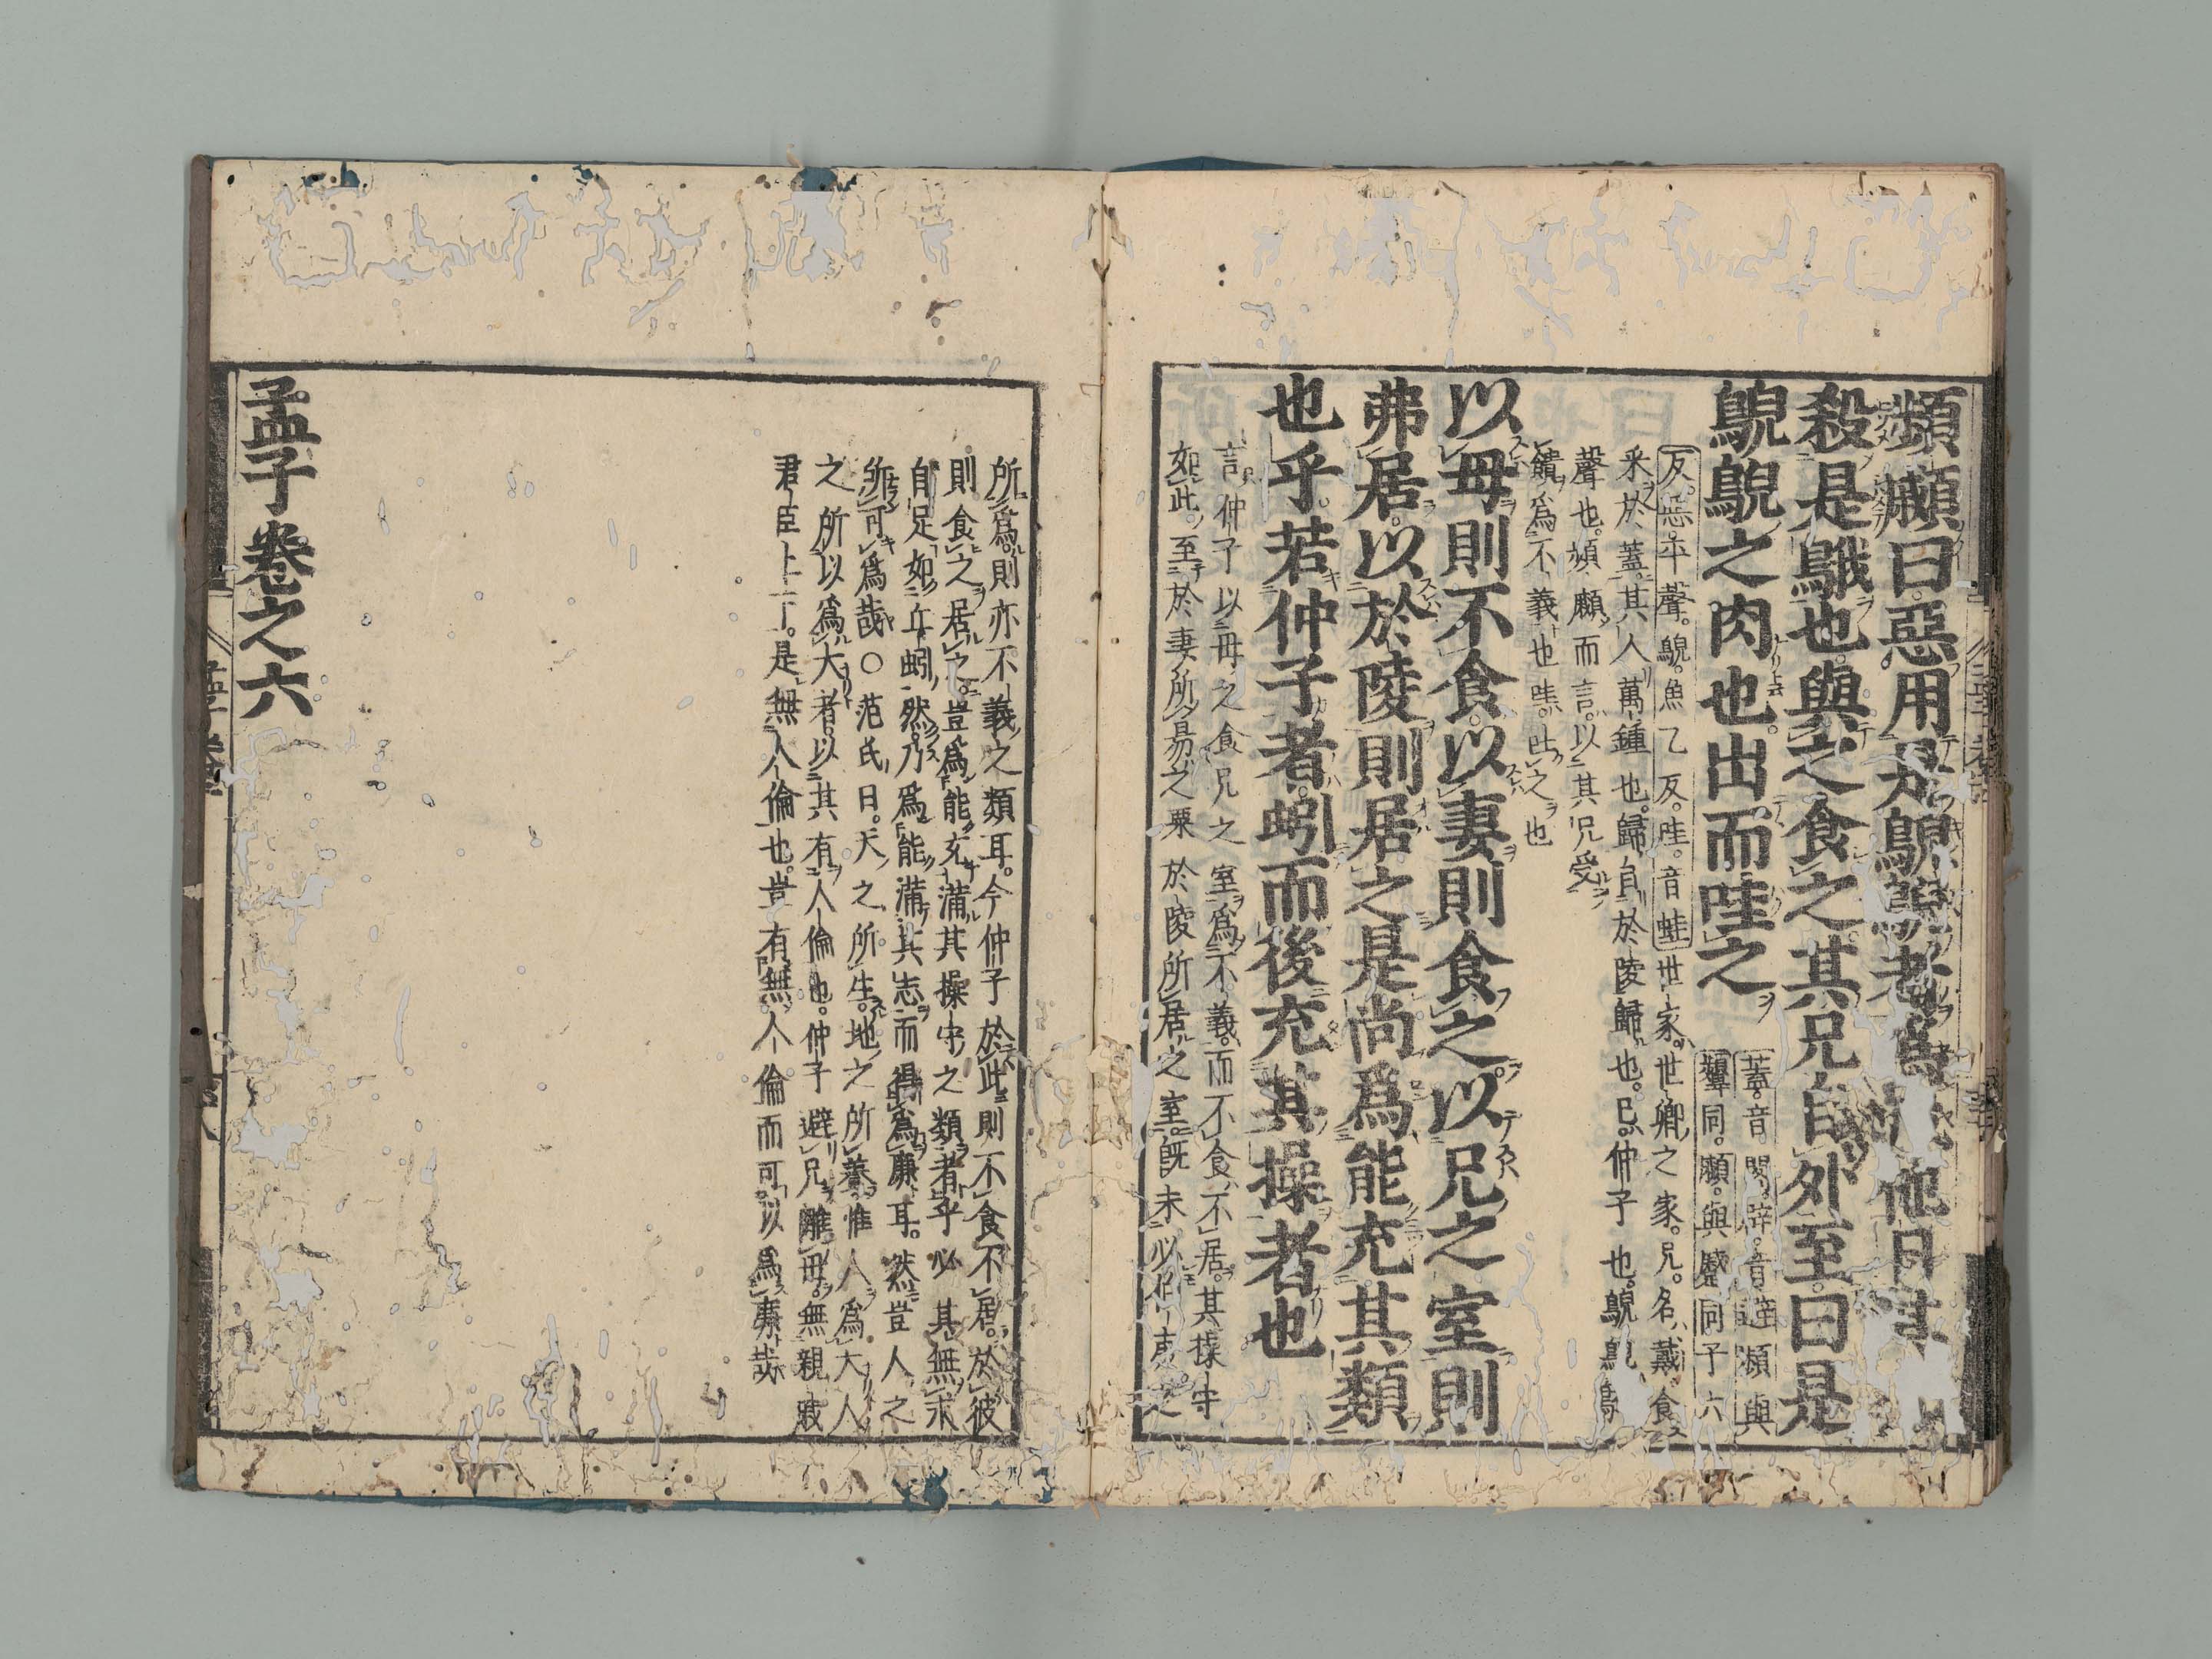 頻顣曰惡用是鶃鶃者爲哉他日其母
殺是鵝也與之食之其兄自外至曰是
鶃鶃之肉也出而哇之
蓋音閤辟音避頻與
顰同顣與蹙同子六
反惡平聲鶃魚乙反哇音蛙世家世卿之家兄名戴食
采於蓋其入萬鍾也歸自於陵歸也己仲子也鶃鶃鵝
聲也頻顣而言以其兄受
饋爲不義也哇吐之也
以母則不食以妻則食之以兄之室則
弗居以於陵則居之是尚爲能充其類
也乎若仲子者蚓而後充其操者也
言仲子以母之食兄之室爲不義而不食不居其操守
如此至於妻所易之粟於陵所居之室既未必伯夷之
所爲則亦不義之類耳今仲子於此則不食不居於彼
則食之居之豈爲能充滿其操守之類者乎必其無求
自足如丘蚓然乃爲能滿其志而得爲廉耳然豈人之
所可爲哉○范氏曰天之所生地之所養惟人爲大人
之所以爲大者以其有人倫也仲子避兄離母無親戚
君臣上下是無人倫也豈有無人倫而可以爲廉哉
孟子卷之六